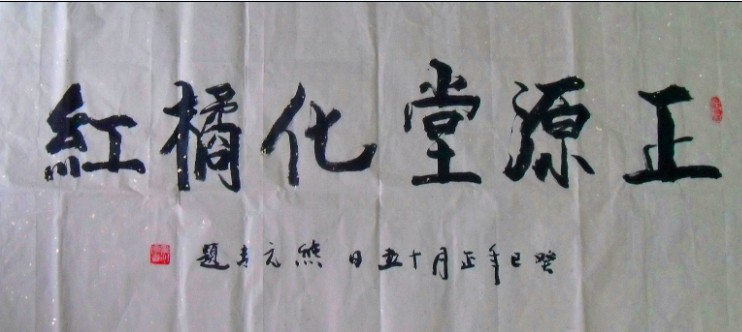 正源堂化橘紅
癸巳年正月十五日 熊元吉題